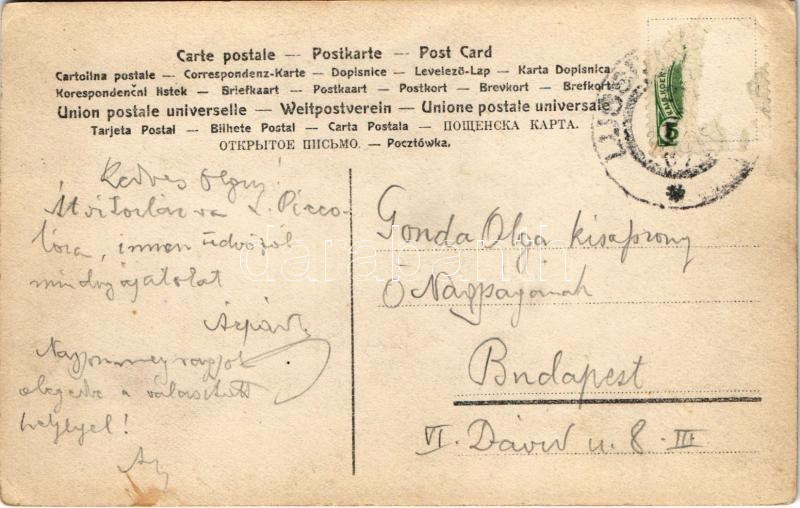 Carte postale — Postkarte — Post Card
Cartolina postale — Correspondenz-Karte — Dopisnice — Levelező-Lap — Karta Dopisnica
Korespondenční lístek — Briefkaart — Postkaart — Postkort — Brevkort — Brefkort
Union postale universelle — Weltpostverein — Unione postale universale
Tarjeta Postal — Bilhete Postal — Carta Postala — ПОЩЕНСКА КАРТА.
ОТКРЫТОЕ ПИСЬМО. — Pocztówka.
5
LUGOS
Kedves
innen üdvözöl
Árpád
a választott
helylyel!
Gonda Olga kisasszony
Ő Nagyságának
Budapest
VI. Dávid u. 8. III
darabanth